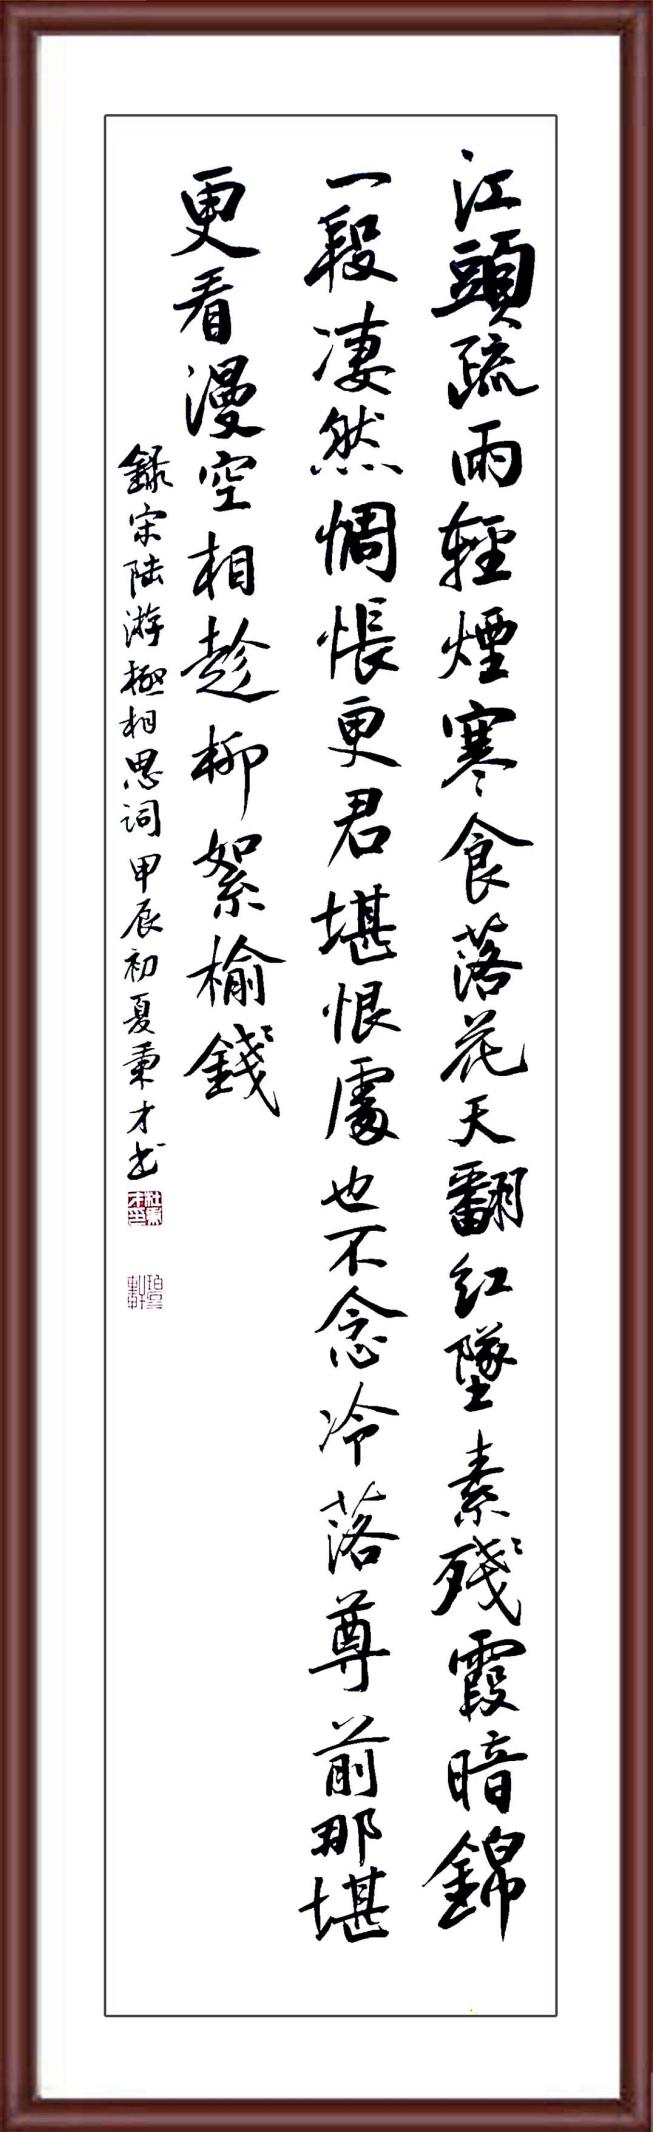 江頭疏雨輕煙寒食落花天翻紅墜素殘霞暗錦
一段淒然惆悵更君堪恨處也不念冷落尊前那堪
更看漫空相趁柳絮榆錢
錄宋陆游極相思词甲辰初夏秉才书